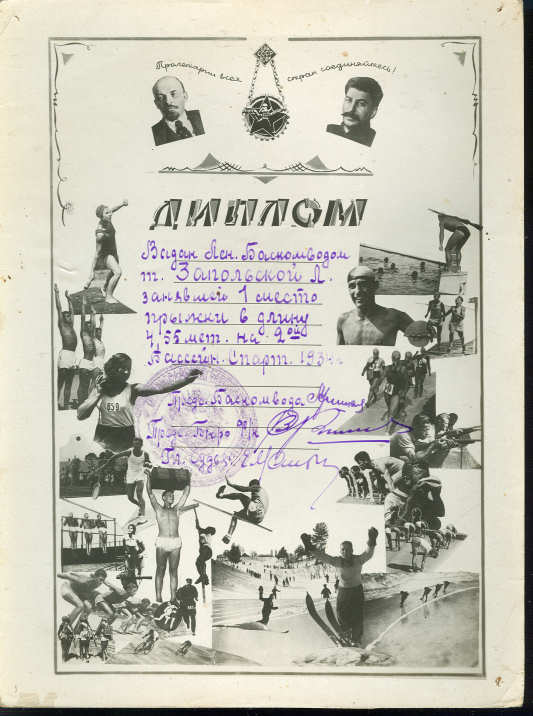 Пролетарии всех стран соединяйтесь!
ДИПЛОМ
Выдан Лен. Баскомводом
т. Запольской Л.
занявшей 1 место
прыжки в длину
4,55 мет. на 2ой
Бассейн. Спарт. 193
Предс. Баскомвода
Предс. Бюро Ф/К
Гл. судья
659